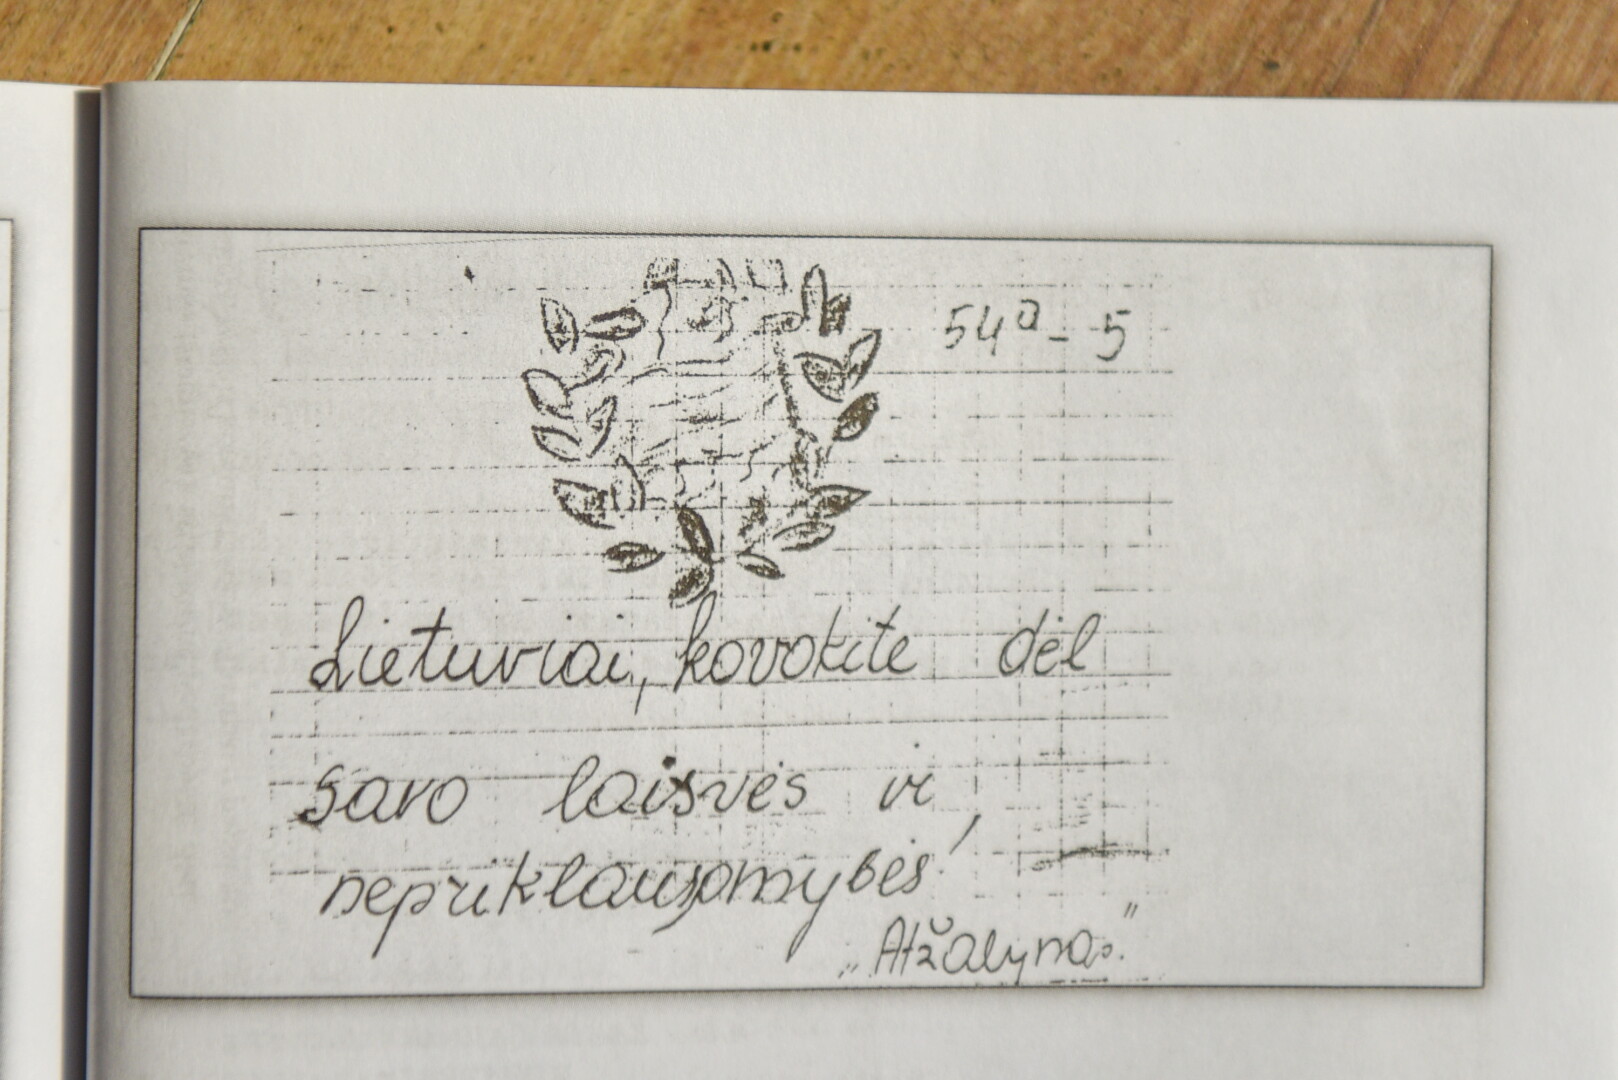 54ª - 5
Lietuviai, kovokite dėl
savo laisvės ir
nepriklausomybės!
„Atžalynas."